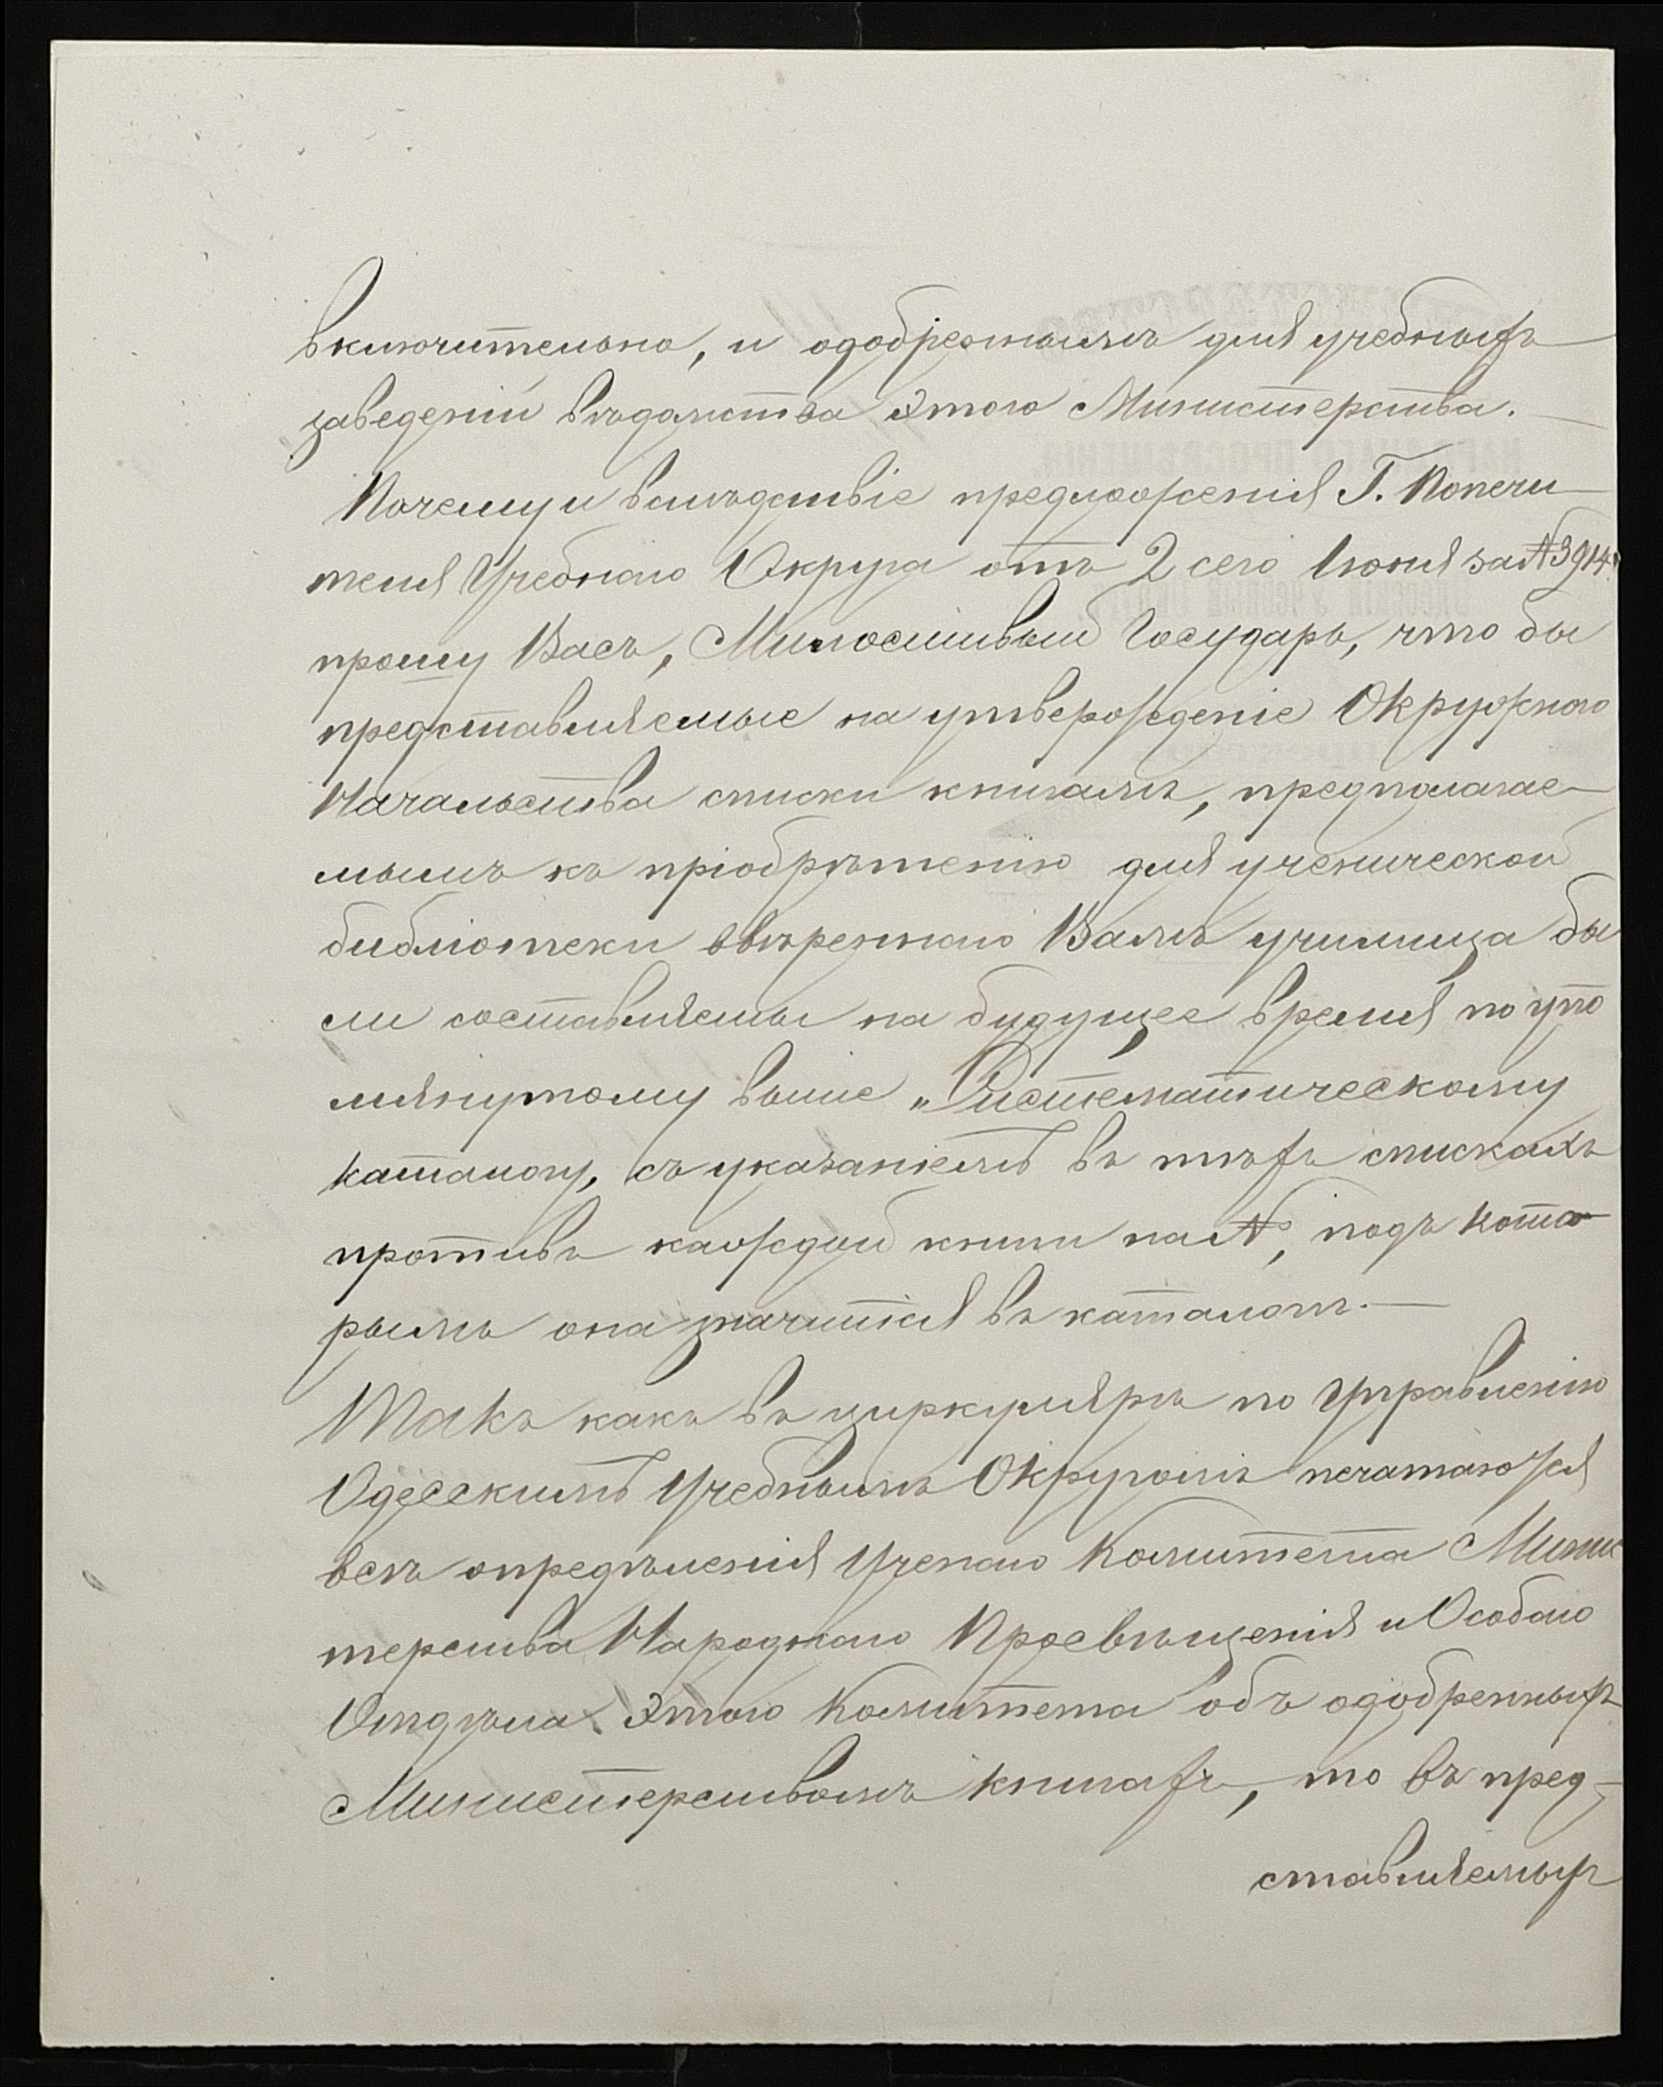 включительно, и одобреннымъ для учебныхъ
заведеній вѣдомства этого Министерства.
Почему и вслѣдствіе предложенія Г. Попечи-
теля Учебнаго Округа отъ 2 сего Іюня за № 3914.
прошу Васъ, Милостивый Государь, что бы
представляемые на утвержденіе Окружного
Начальства списки книгамъ, предполагае-
мымъ къ пріобрѣтенію для ученической
библіотеки ввѣреннаго Вамъ училища бы
ли составляемы на будущее время по упо
мянутому выше „Систематическому
каталогу, съ указаніемъ въ тѣхъ спискахъ
противъ каждой книги на №, подъ кото
рымъ она значится въ каталогѣ.—
Такъ какъ въ циркулярѣ по Управленію
Одесскимъ Учебнымъ Округомъ печатаются
всѣ опредѣленія Ученаго Комитета Минис
терства Народнаго Просвѣщенія и Особаго
Отдѣла этого Комитета объ одобренныхъ
Министерствомъ книгахъ, то въ пред-
ставляемых